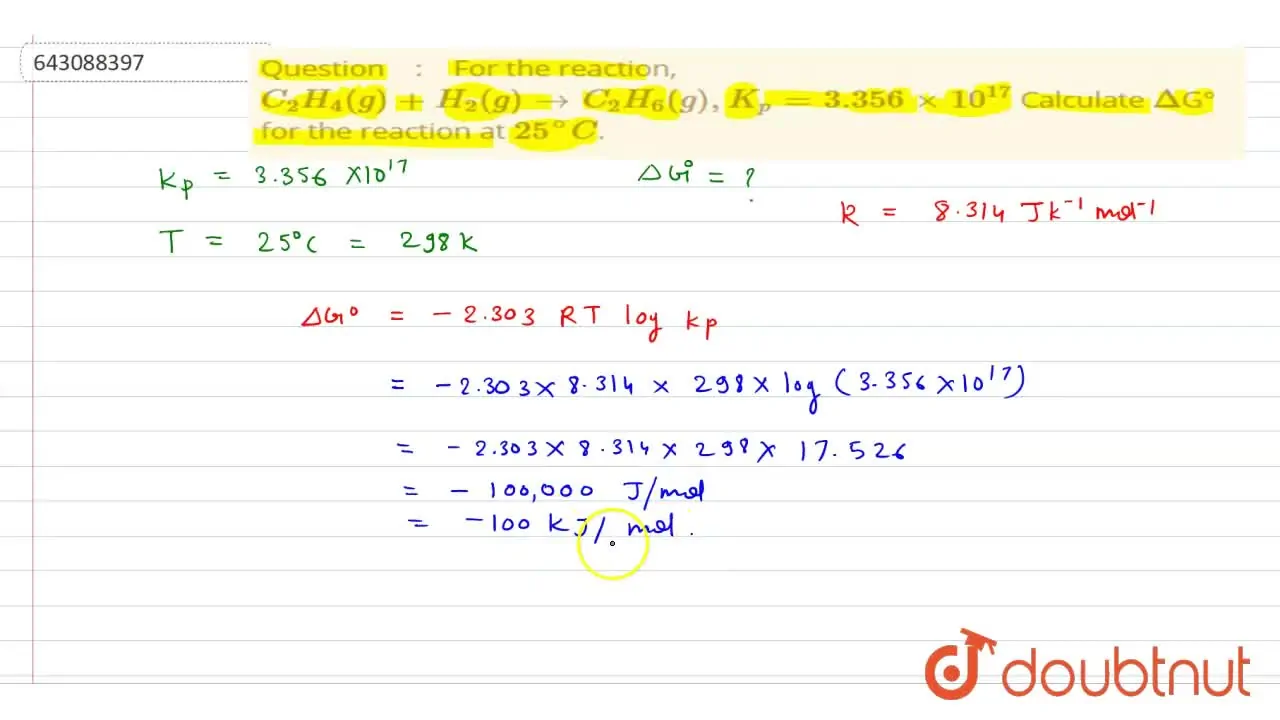 643088397
Question : For the reaction,
C₂H₄(g) + H₂(g) → C₂H₆(g), Kₚ = 3.356 × 10¹⁷ Calculate ΔG°
for the reaction at 25°C.
Kp = 3.356 ×10¹⁷
ΔG° = ?
R = 8.314 JK⁻¹ mol⁻¹
T = 25°C = 298K
ΔG° = - 2.303 RT log Kp
= - 2.303 × 8.314 × 298 × log (3.356 ×10¹⁷)
= - 2.303 × 8.314 × 298 × 17.526
= - 100,000 J/mol
= - 100 KJ/mol.
doubtnut